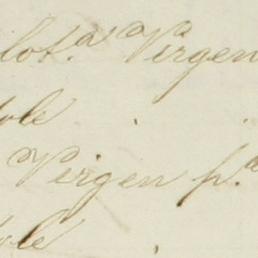 lot.ª Virgen
ole
Virgen p.ª
ole